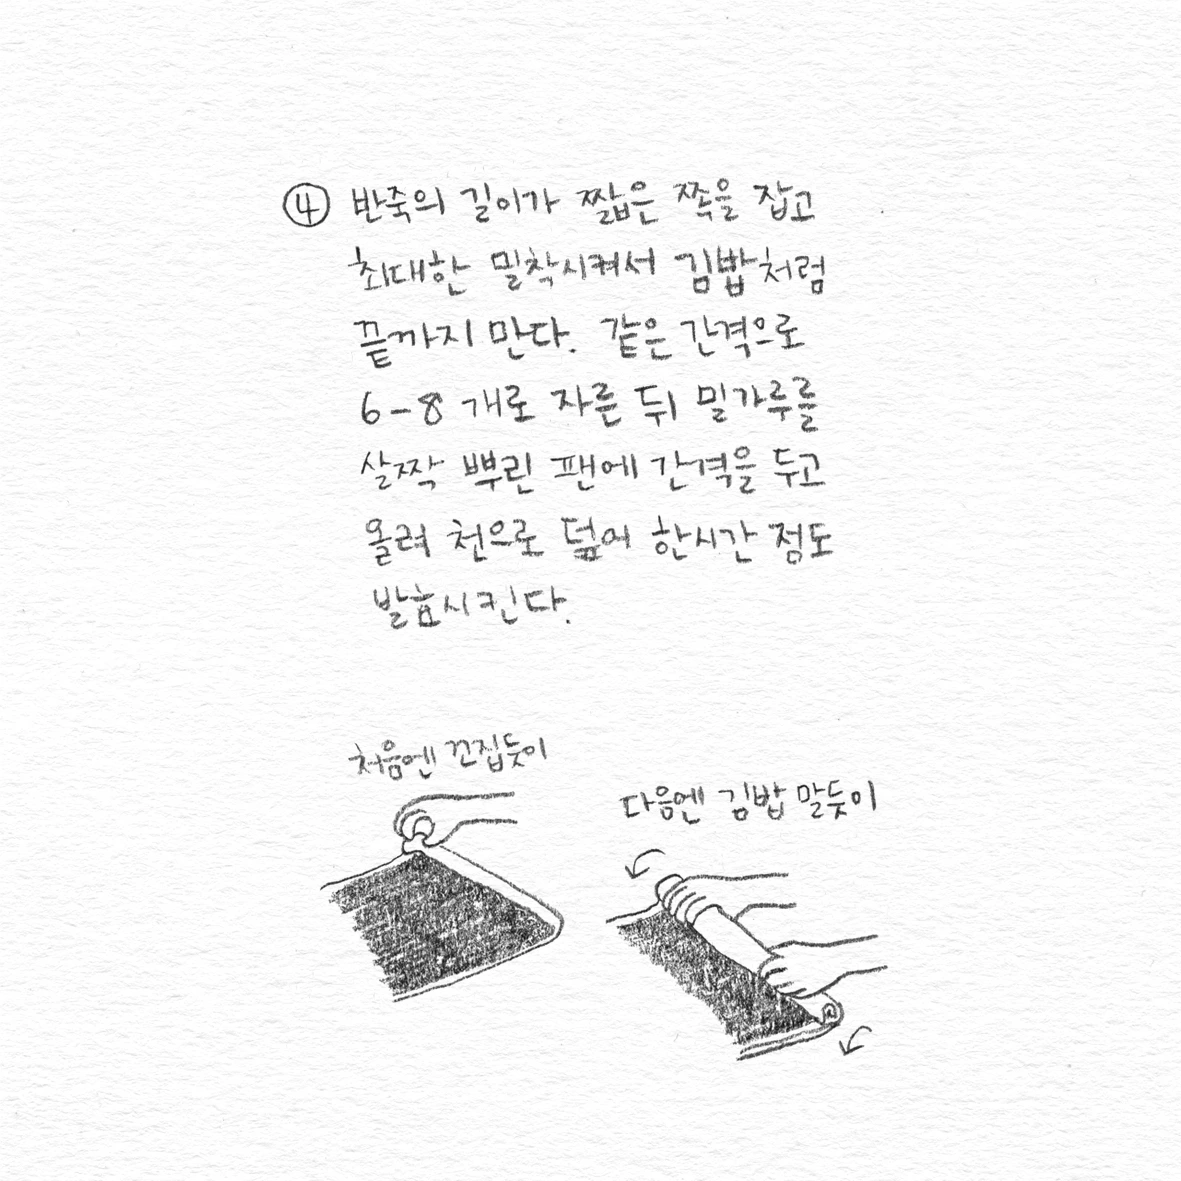 ④ 반죽의 길이가 짧은 쪽을 잡고
최대한 밀착시켜서 김밥처럼
끝까지 만다. 같은 간격으로
6-8 개로 자른 뒤 밀가루를
살짝 뿌린 팬에 간격을 두고
올려 천으로 덮어 한시간 정도
발효시킨다.
처음엔 꼬집듯이
다음엔 김밥 말듯이